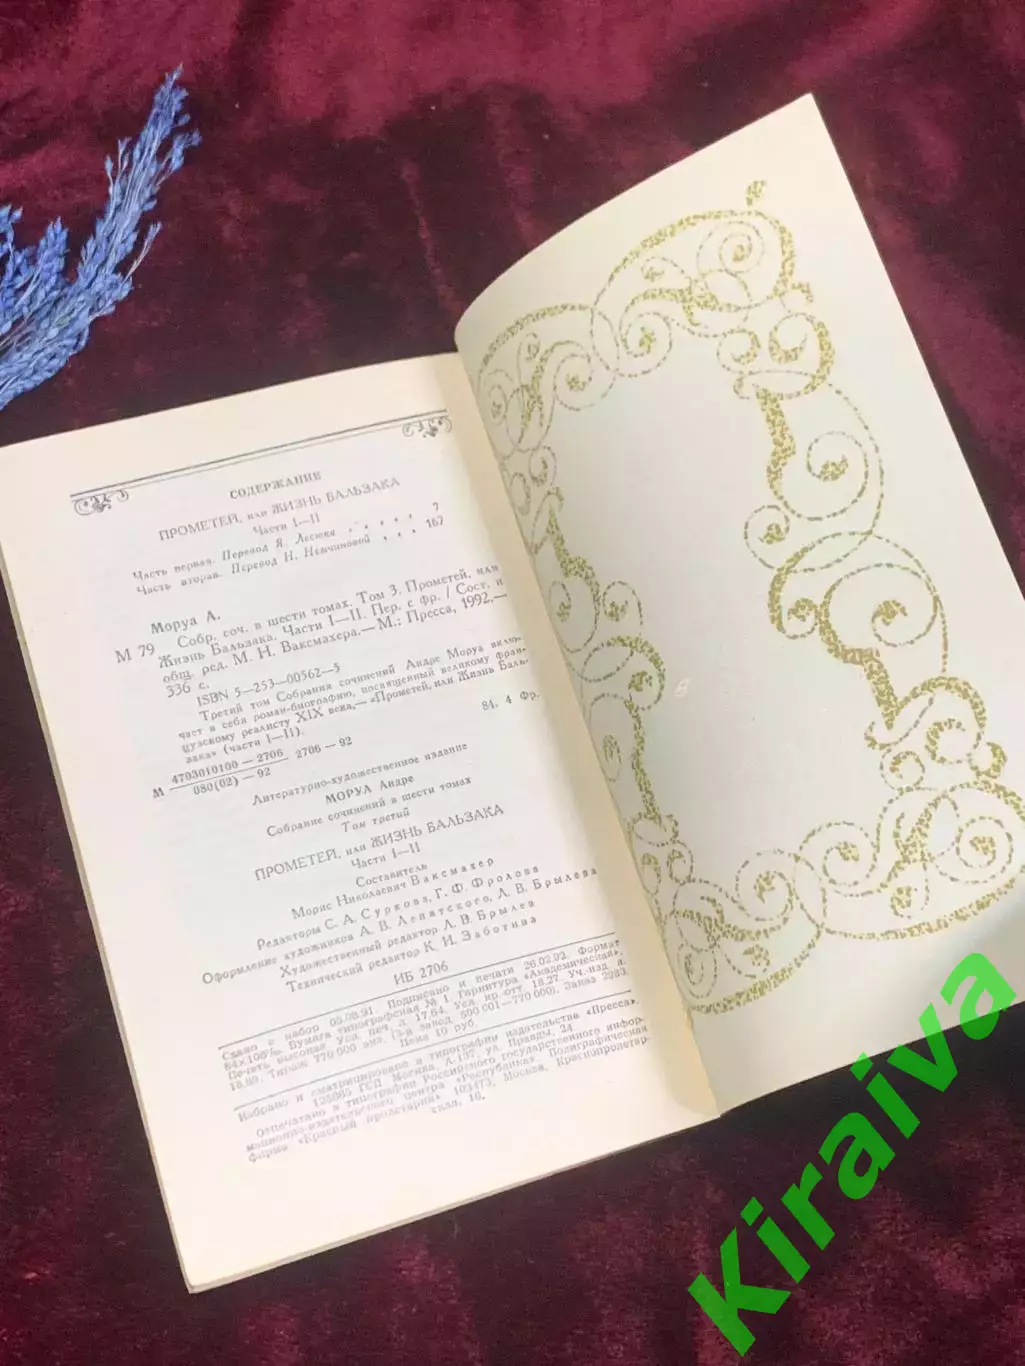 СОДЕРЖАНИЕ
ПРОМЕТЕЙ, или ЖИЗНЬ БАЛЬЗАКА
Части I—II
Часть первая. Перевод Я. Лесюка . . . . . 7
Часть вторая. Перевод Н. Немчиновой . . . 167
Моруа А.
М 79 Собр. соч. в шести томах. Том 3. Прометей, или
Жизнь Бальзака. Части I—II. Пер. с фр. / Сост. и
общ. ред. М. Н. Ваксмахера.— М.: Пресса, 1992.—
336 с.
ISBN 5—253—00562—5
Третий том Собрания сочинений Андре Моруа вклю-
чает в себя роман-биографию, посвященный великому фран-
цузскому реалисту XIX века,— «Прометей, или Жизнь Баль-
зака» (части I—II).
М 4703010100—2706 2706—92
080(02)—92
84. 4 Фр.
Литературно-художественное издание
МОРУА Андре
Собрание сочинений в шести томах
Том третий
ПРОМЕТЕЙ, или ЖИЗНЬ БАЛЬЗАКА
Части I—II
Составитель
Морис Николаевич Ваксмахер
Редакторы С. А. Суркова, Г. Ф. Фролова
Оформление художников А. В. Лепятского, Л. В. Брылева
Художественный редактор Л. В. Брылев
Технический редактор К. И. Заботина
ИБ 2706
Сдано в набор 05.08.91. Подписано к печати 26.02.92. Формат
84х108¹/₃₂. Бумага типографская № 1. Гарнитура «Академическая».
Печать высокая. Усл. печ. л. 17,64. Усл. кр.-отт. 18,27. Уч.-изд. л.
18,89. Тираж 770 000 экз. (3-й завод. 590 001—770 000). Заказ
Цена 10 руб.
Набрано и сматрицировано в типографии издательства «Пресса»,
125865 ГСП Москва, А-137, ул. Правды, 24
Отпечатано в типографии Российского государственного инфор-
мационно-издательского центра «Республика» Полиграфическая
фирма «Красный пролетарий» 103473, Москва, Краснопролетар-
ская, 16.
Kiraiva